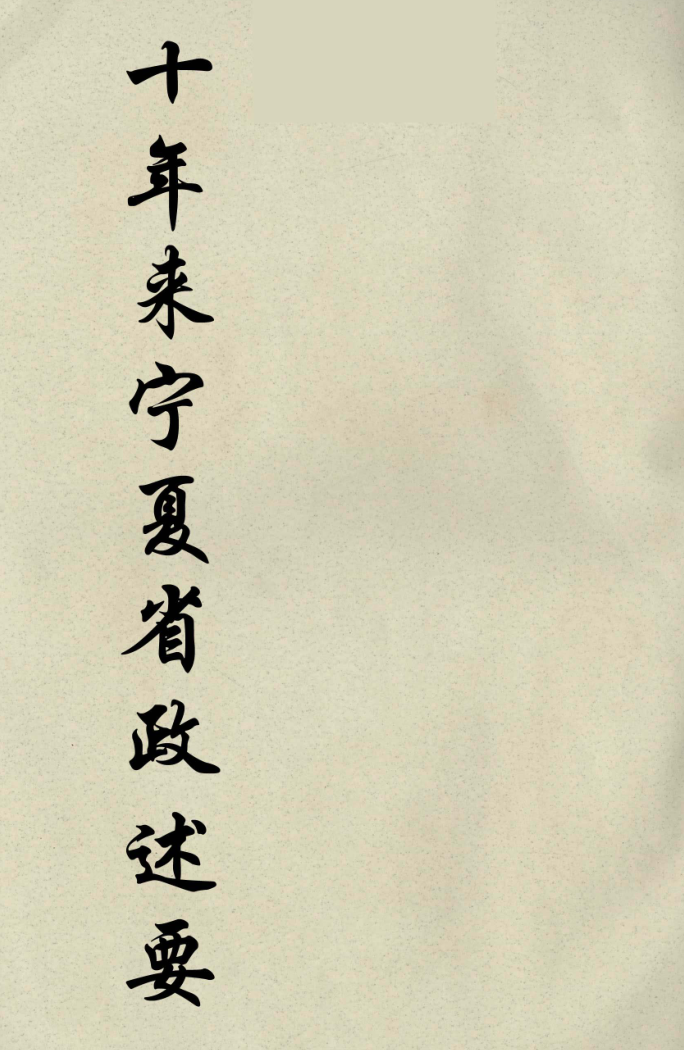 十年来宁夏省政述要